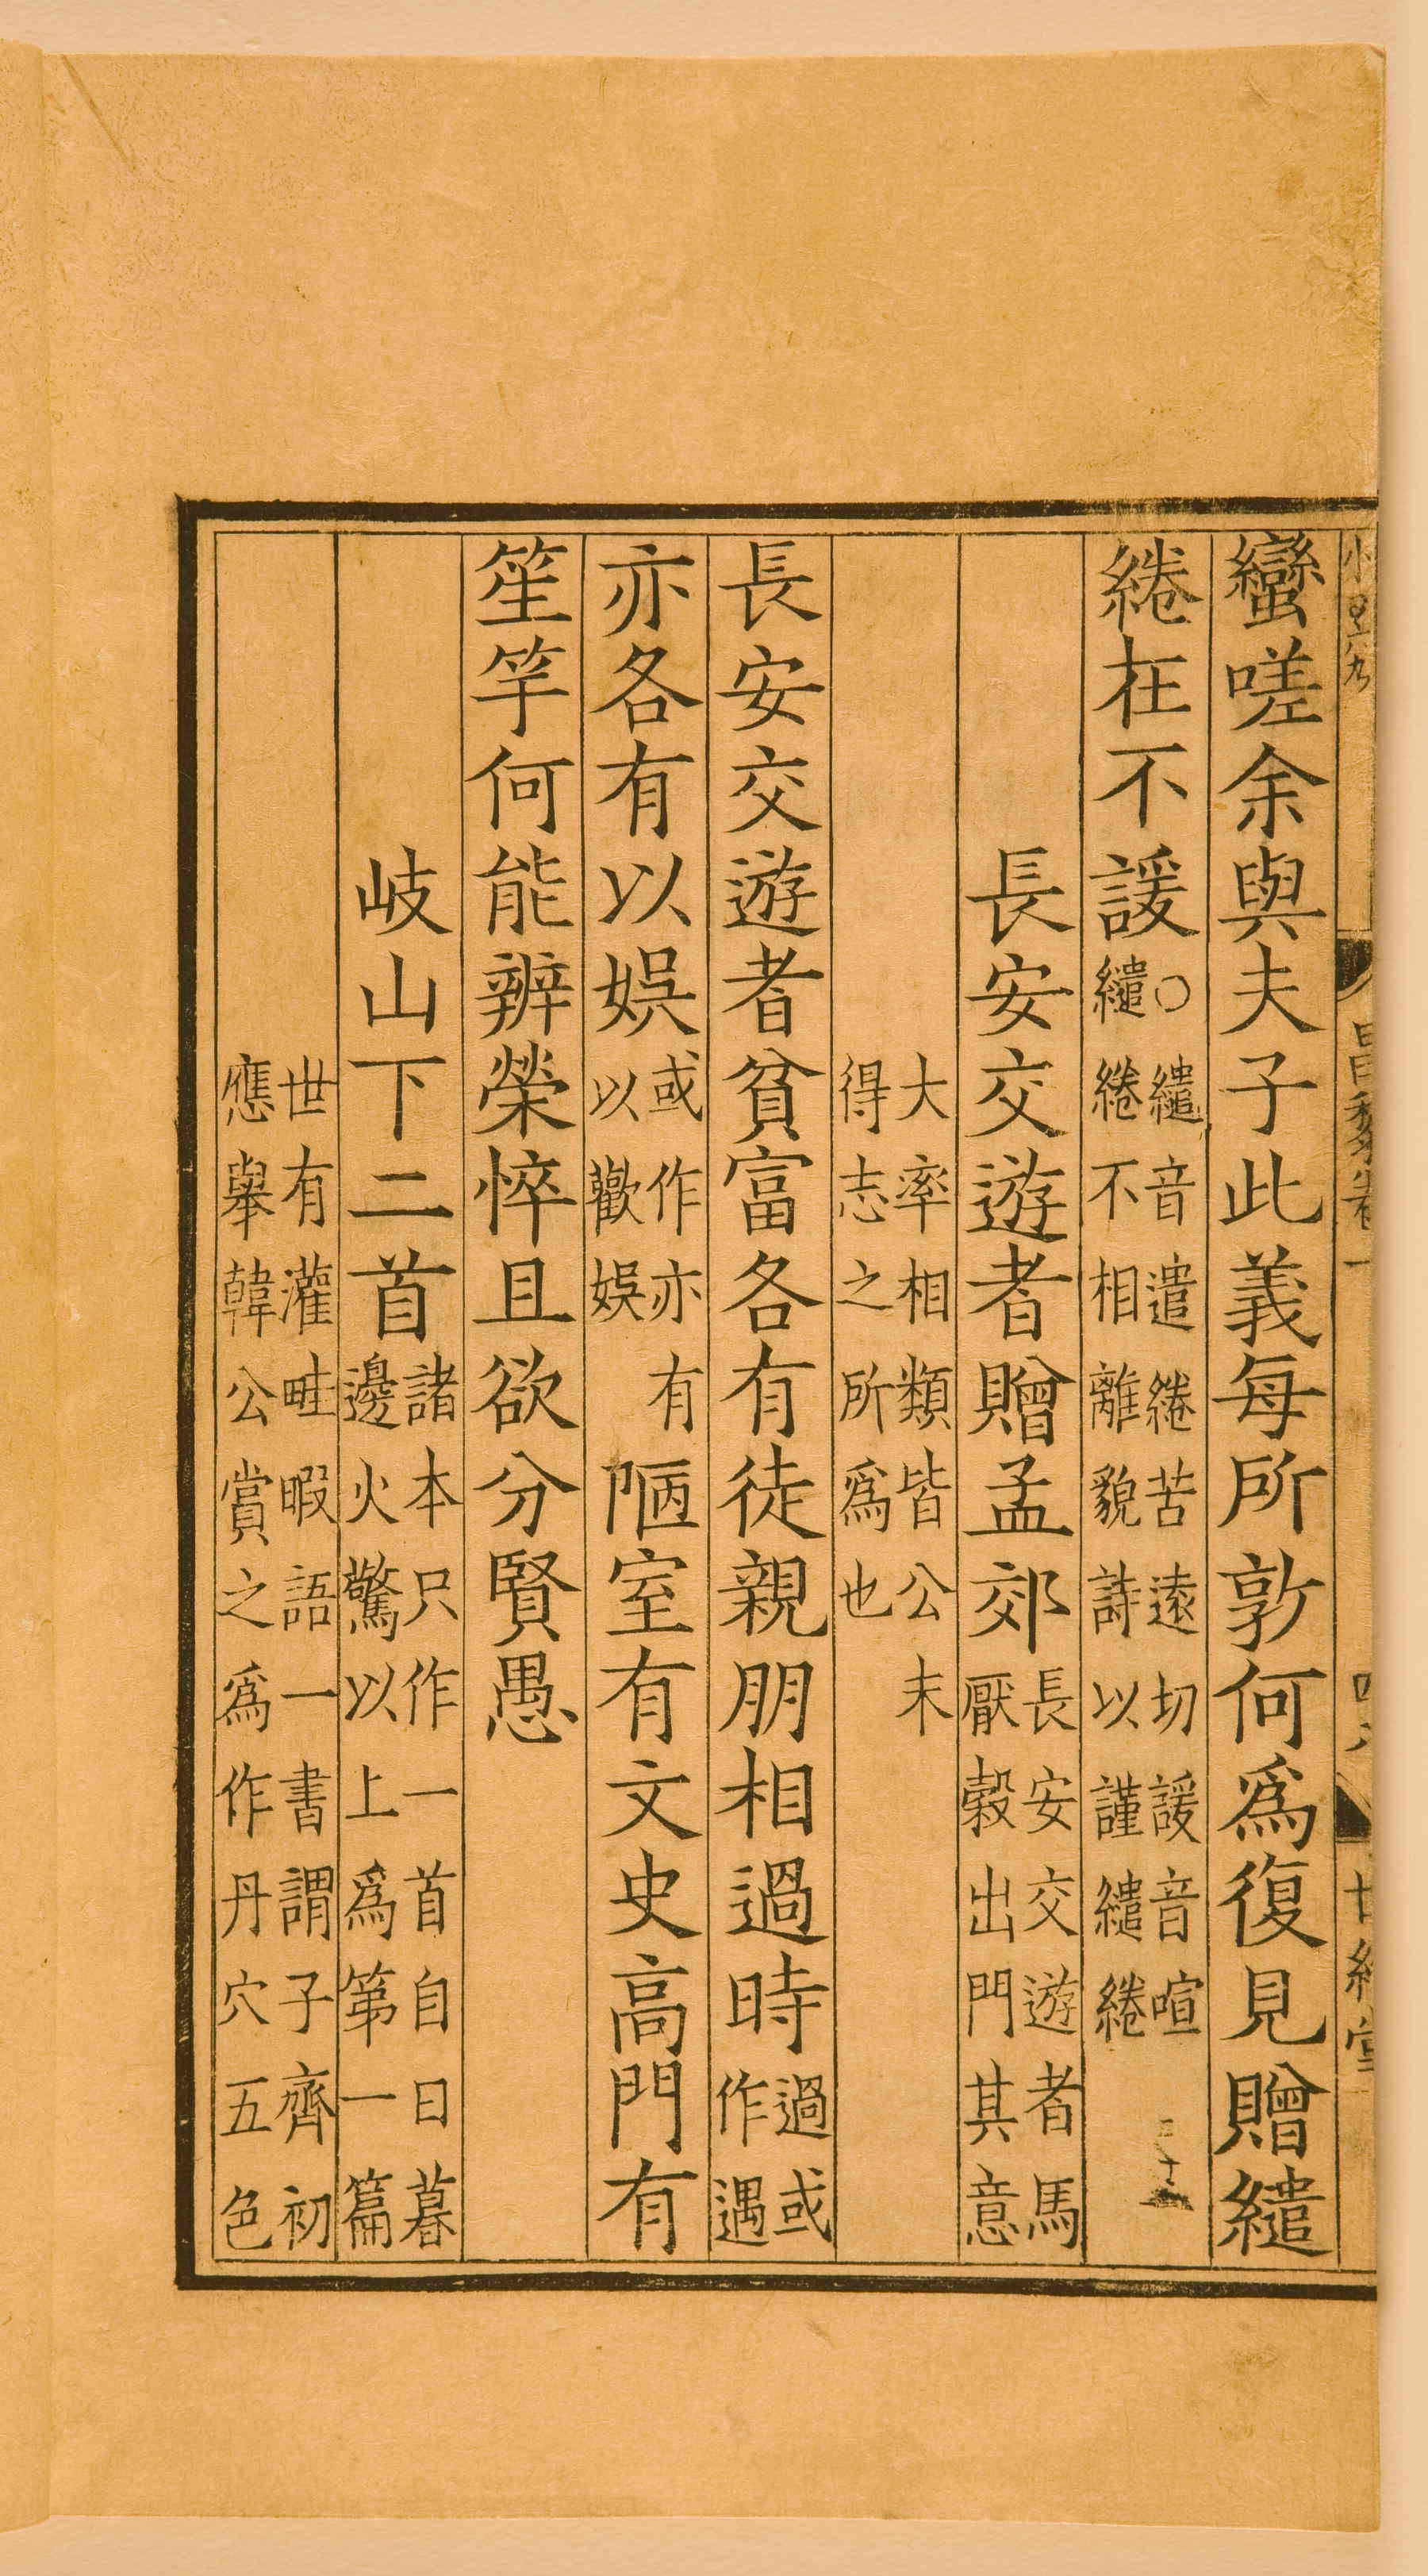 蠻嗟余與夫子此義每所敦何爲復見贈繾
綣在不諼
○繾音遣綣苦遠切諼音喧
繾綣不相離貌詩以謹繾綣
長安交遊者贈孟郊
長安交遊者馬
厭穀出門其意
大率相類皆公未
得志之所爲也
長安交遊者貧富各有徒親朋相過時
過或
作遇
亦各有以娛
或作亦有
以歡娛
陋室有文史高門有
笙竽何能辨榮悴且欲分賢愚
岐山下二首
諸本只作一首自日暮
邊火驚以上爲第一篇
世有灌畦暇語一書謂子齊初
應舉韓公賞之爲作丹穴五色